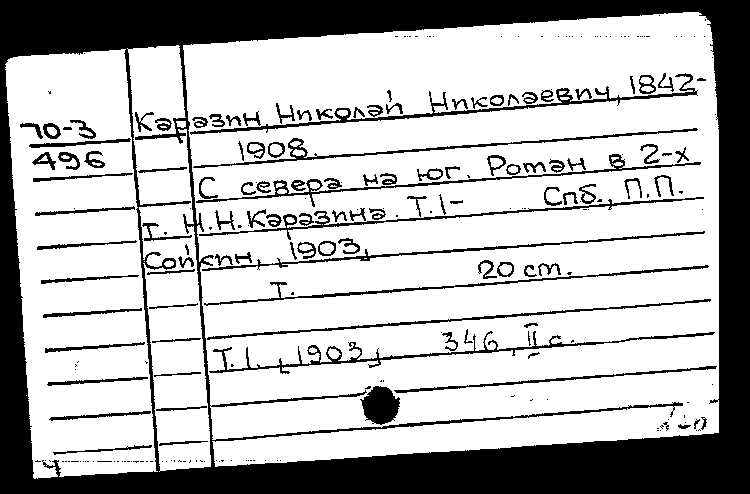 70-3
496
Каразин, Николай Николаевич, 1842-
1908.
С севера на юг. Ротан в 2-х
т. Н.Н.Каразина. Т.1- Спб., П.П.
Сойкин, [1903]
т. 20 cm.
Т.1. [1903]. 346, II с.